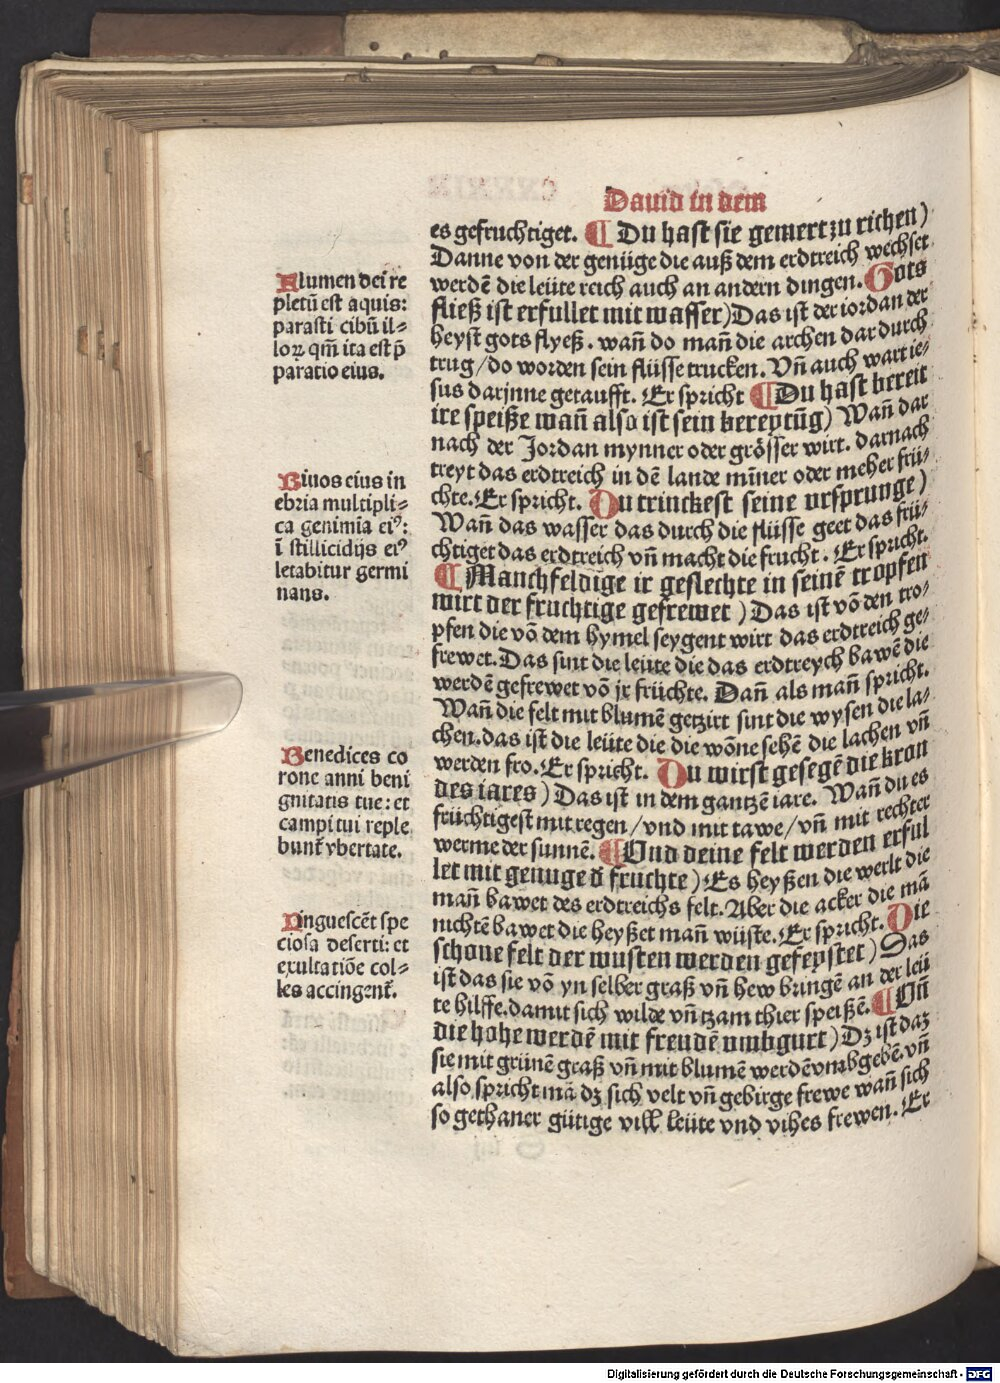 Dauid in dem
es gefruchtiget. ¶ Du hast sie gemert zu richen)
Danne von der genüge die auß dem erdtreich wechset
werdē die leüte reich auch an andern dingen. Gots
fließ ist erfullet mit wasser) Das ist der iordan der
heyst gots flyeß. wañ do mañ die archen dar durch
trug / do worden sein flüsse trucken. Vñ auch wart ie⸗
sus darjnne getaufft. Er spricht ¶ Du hast bereit
ire speiße wañ also ist sein bereytūg) Wañ dar
nach der Jordan mynner oder grösser wirt. darnach
treyt das erdtreich in dē lande miñer oder meher frü⸗
chte. Er spricht. Du trinckest seine vrsprunge)
Wañ das wasser das durch die flüsse geet das frü⸗
chtiget das erdtreich vñ macht die frucht. Er spricht.
¶ Manchfeldige ir geslechte in seinē tropfen
wirt der fruchtige gefrewet) Das ist vō den tro⸗
pfen die vō dem hymel seygent wirt das erdtreich ge⸗
frewet. Das sint die leüte die das erdtreych bawē die
werdē gefrewet vō jr früchte. Dañ als mañ spricht.
Wañ die felt mit blumē getzirt sint die wysen die la⸗
chen. das ist die leüte die die wōne sehē die lachen vñ
werden fro. Er spricht. Du wirst gesegē die kron
des iares) Das ist in dem gantzē iare. Wañ du es
früchtigest mit regen / vnd mit tawe / vñ mit rechter
werme der sunnē. ¶ Vnd deine felt werden erful
let mit genuge d̄ fruchte) Es heyßen die werlt die
mañ bawet des erdtreichs felt. Aber die acker die mā
nichtē bawet die heyßet mañ wüste. Er spricht. Die
schone felt der wusten werden gefeystet) Das
ist das sie vō yn selber graß vñ hew bringē an der leü
te hilffe. damit sich wilde vñ tzam thier speißē. ¶ Vñ
die hohe werdē mit freudē vmbgurt) Dz ist daz
sie mit grünē graß vñ mit blumē werdē vmbgebē. vñ
also spricht mā dz sich velt vñ gebirge frewe wañ sich
so gethaner gütige vill leüte vnd vihes frewen. Er
Flumen dei re
pletū est aquis:
parasti cibū il⸗
loꝝ qm̄ ita est p̄
paratio eius.
Riuos eius in
ebria multipli⸗
ca genimia ei⁹:
ī stillicidijs ei⁹
letabitur germi
nans.
Benedices co
rone anni beni
gnitatis tue: et
campi tui reple
bunt̄ vbertate.
Pinguescēt spe
ciosa deserti: et
exultatiōe col⸗
les accingent̄.
Digitalisierung gefördert durch die Deutsche Forschungsgemeinschaft - DFG